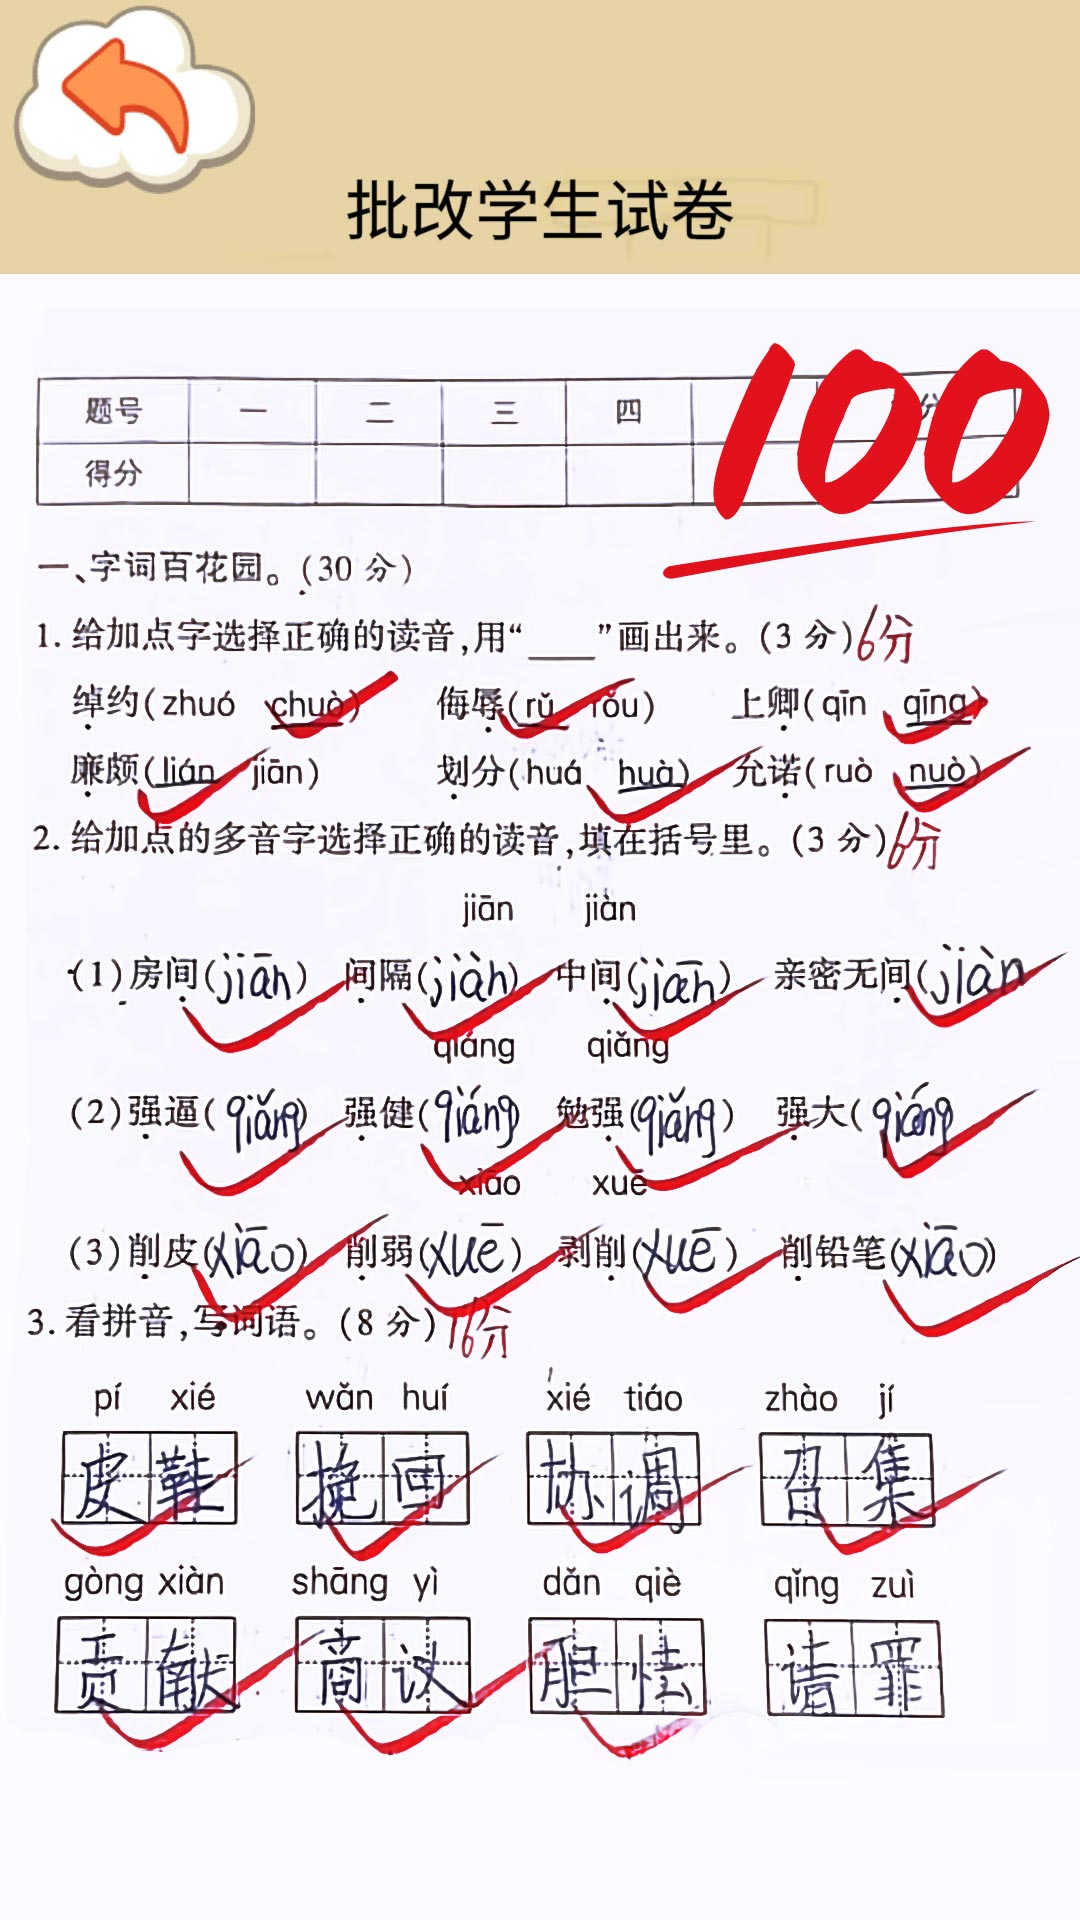 批改学生试卷
100
题号 一 二 三 四 分
得分
一、字词百花园。(30 分)
1. 给加点字选择正确的读音,用“____”画出来。(3 分)6分
绰约(zhuó chuò) 侮辱(rǔ rǒu) 上卿(qīn qīng)
廉颇(lián jiān) 划分(huá huà) 允诺(ruò nuò)
2. 给加点的多音字选择正确的读音,填在括号里。(3 分)6分
jiān jiàn
(1)房间(jiān) 间隔(jiàn) 中间(jiān) 亲密无间(jiàn
qiáng qiǎng
(2)强逼(qiǎng) 强健(qiáng) 勉强(qiǎng) 强大(qiáng
xiāo xuē
(3)削皮(xiāo) 削弱(xuē) 剥削(xuē) 削铅笔(xiāo)
3. 看拼音,写词语。(8 分)16分
pí xié wǎn huí xié tiáo zhào jí
皮鞋 挽回 协调 召集
gòng xiàn shāng yì dǎn qiè qǐng zuì
贡献 商议 胆怯 请罪